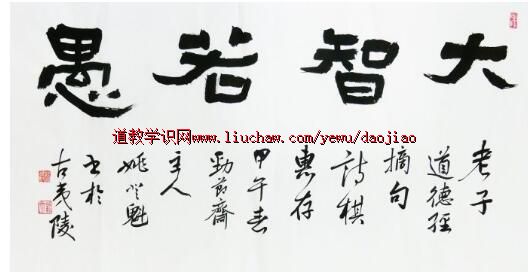 大智若愚
老子
道德經
摘句
詩棋
惠存
甲午春
勁節齋
主人
姚
魁
书於
古夷陵
道教学识网www.liuchaw.com/yewu/daojiao